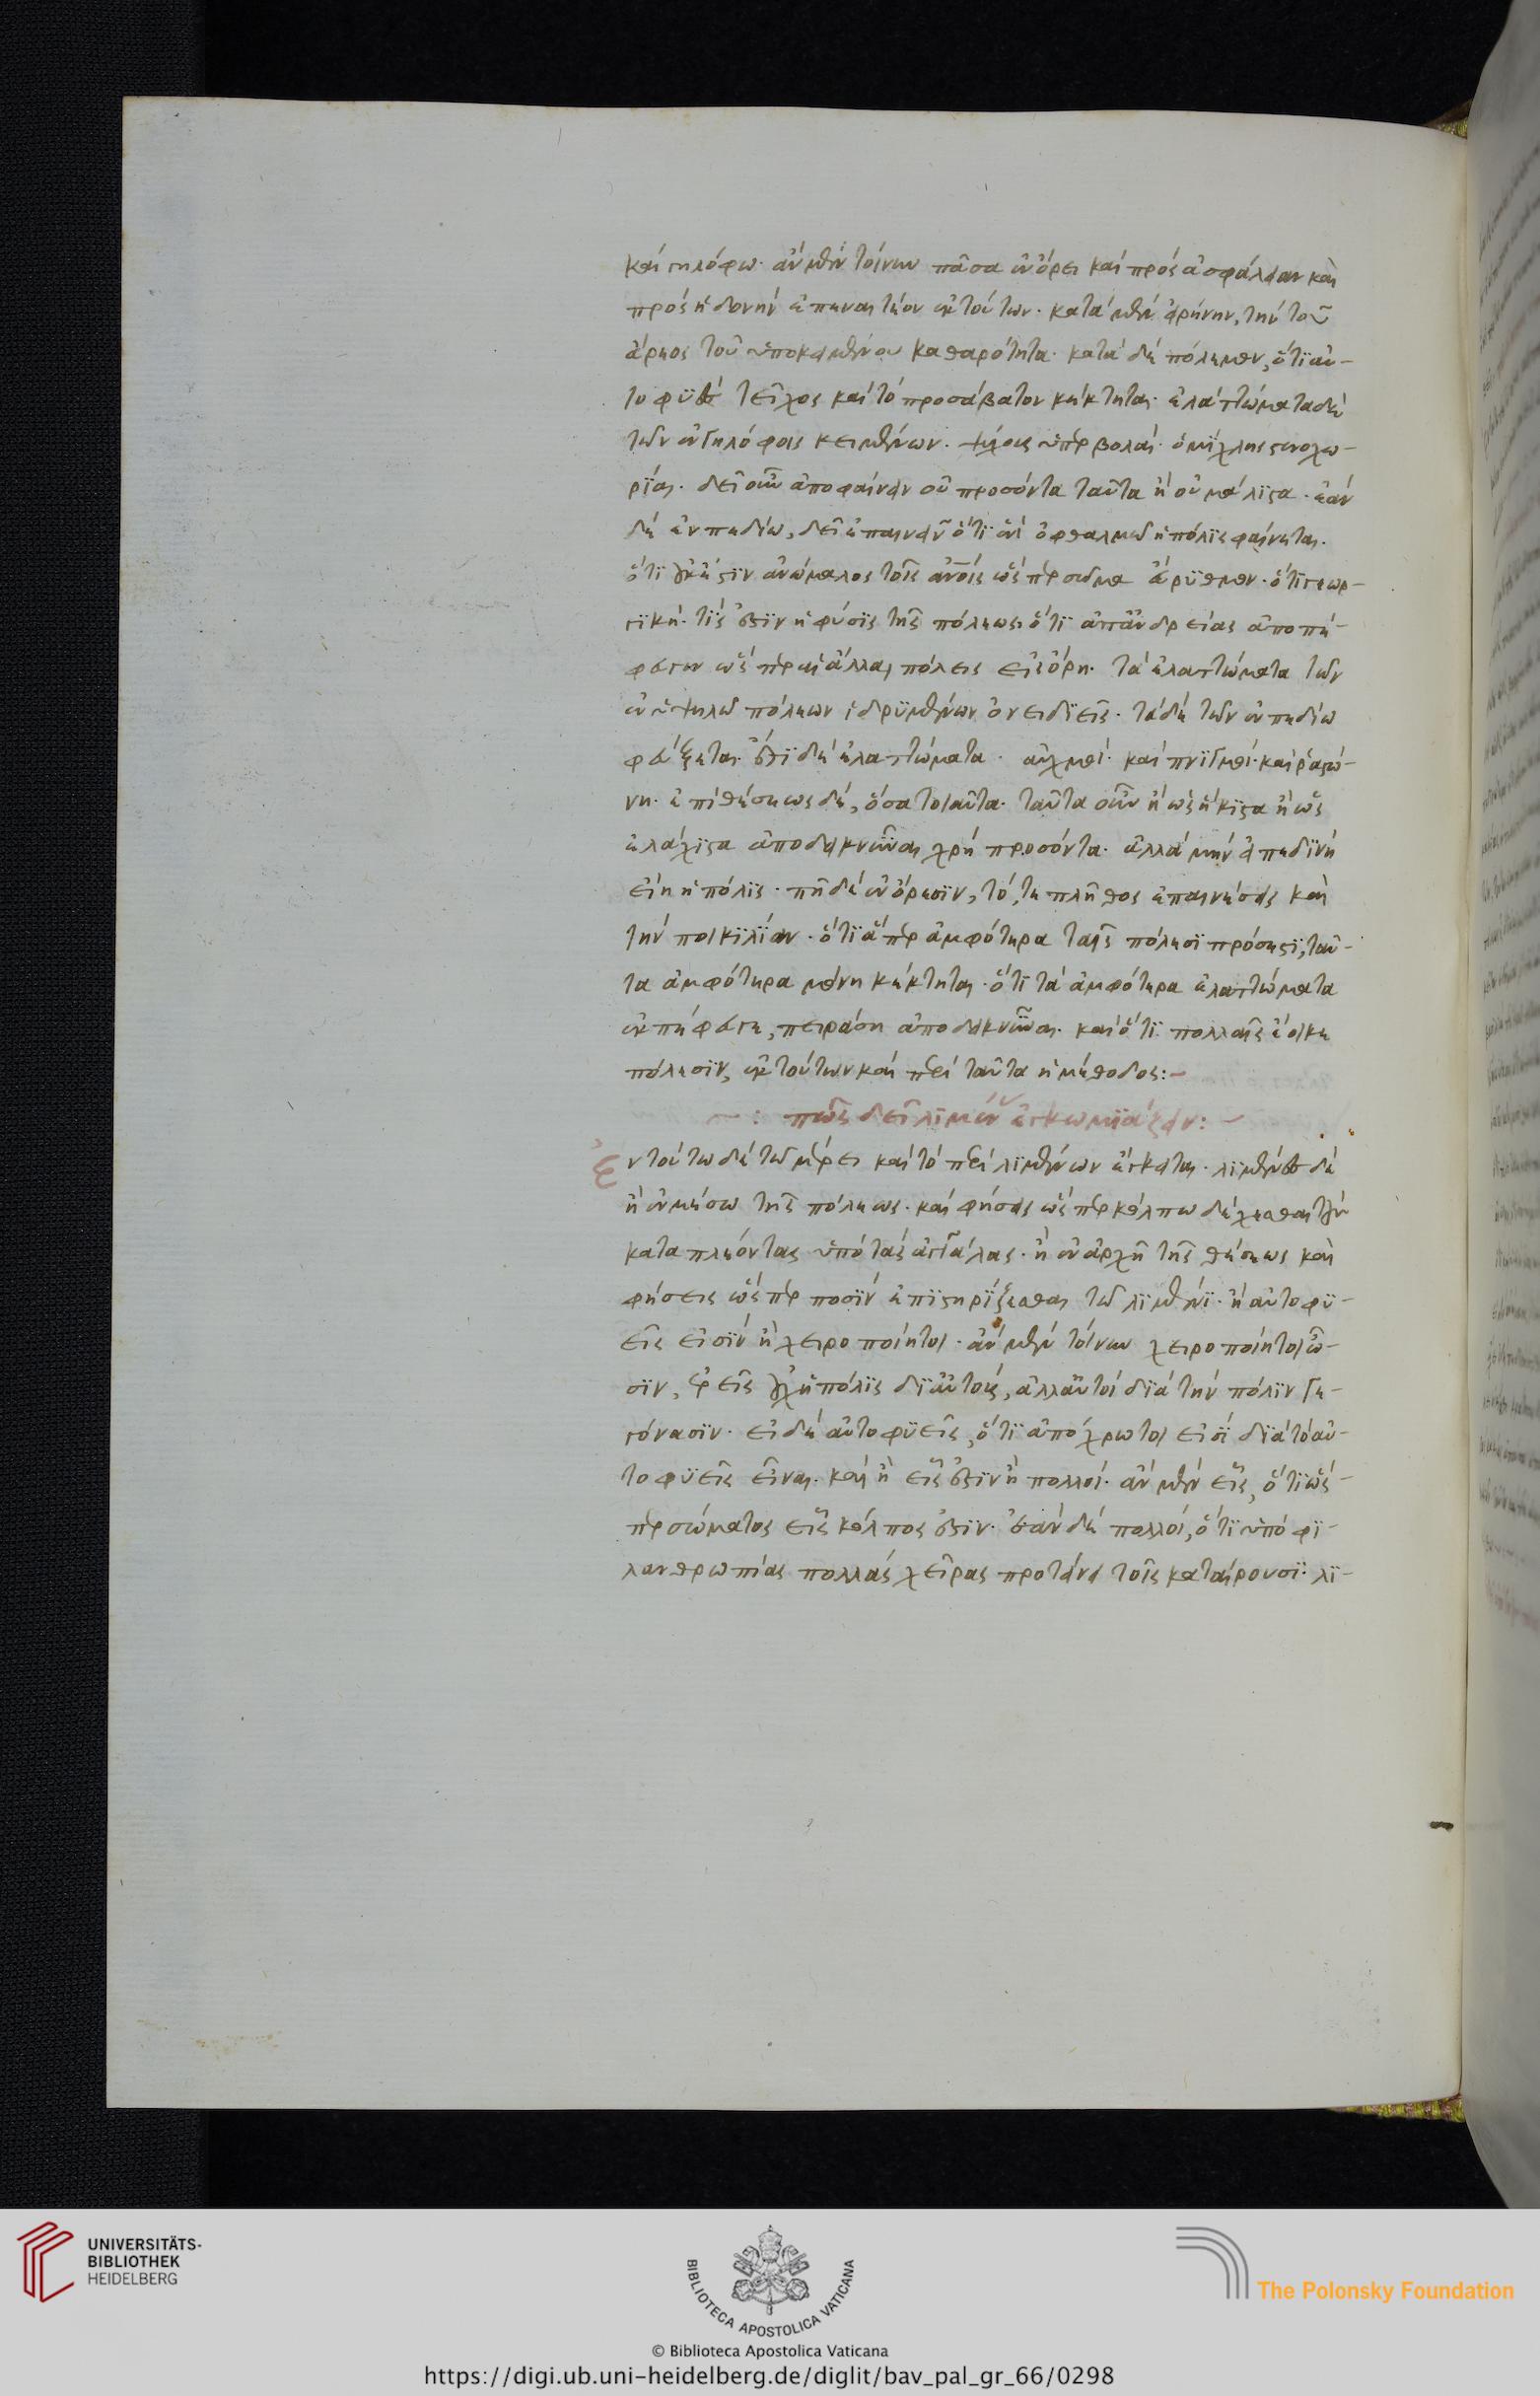 καὶ γηλόφω· ἂν μὲν τοίνυν πᾶσα ἐν ὄρει καὶ πρὸς ἀσφάλειαν καὶ
πρὸς ἡδονὴν ἐπαινετέον ἐκ τούτων· κατὰ μὲν εἰρήνην, τὴν τοῦ
ἀέρος τοῦ ὑποκειμένου καθαρότητα· κατὰ δὲ πόλεμον, ὅτι αὐ-
τοφυὲς τεῖχος καὶ τὸ προσάβατον κέκτηται· ἐλαττώματα δὲ
τῶν ἐν γηλόφοις κειμένων· ψύχους ὑπερβολαί· ὁμίχλης στενοχω-
ρίαι· δεῖ οὖν ἀποφαίνειν οὐ προσόντα ταῦτα ἢ οὐ μάλιστα· ἐὰν
δὲ ἐν πεδίω, δεῖ ἐπαινεῖν ὅτι ἑνὶ ὀφθαλμῶ ἡ πόλις φαίνεται·
ὅτι οὐκ ἔστιν ἀνώμαλος τοῖς ἀνοις ὥσπερ σῶμα ἄρυθμον· ὅτι γεωρ-
γική· τίς ἐστιν ἡ φύσις τῆς πόλεως· ὅτι ἀπ' ἀνδρείας ἀποπέ-
φευγεν ὥσπερ αἱ ἄλλαι πόλεις εἰς ὄρη· τὰ ἐλαττώματα τῶν
ἐν ὑψηλῶ πόλεων ἱδρυμένων ὀνειδιεῖς· τὰ δὲ τῶν ἐν πεδίω
φεύξεται· ἔστι δὲ ἐλαττώματα· αὐχμοὶ· καὶ πνιγμοὶ· καὶ ῥαστώ-
νη· ἐπιθέσεως δὲ, ὅσα τοιαῦτα· ταῦτα οὖν ἢ ὡς ἥκιστα ἢ ὡς
ἐλάχιστα ἀποδεικνύναι χρὴ προσόντα· ἀλλὰ μὴν εἰ πεδινὴ
εἴη ἡ πόλις· πῆ δὲ ἐν ὄρεσιν, τό, τε πλῆθος ἐπαινέσεις καὶ
τὴν ποικιλίαν· ὅτι ἅπερ ἀμφότερα ταῖς πόλεσι πρόσεστι, ταῦ-
τα ἀμφότερα μόνη κέκτηται· ὅτι τὰ ἀμφότερα ἐλαττώματα
ἐκπέφευγε, πειράση ἀποδεικνύναι· καὶ ὅτι πολλαῖς ἔοικε
πόλεσιν, ἐκ τούτων καὶ περὶ ταῦτα ἡ μέθοδος:-
~: πῶς δεῖ λιμένας ἐγκωμιάζειν:-
Ἐν τούτω δὲ τῶ μέρει καὶ τὸ περὶ λιμένων ἔγκειται· λιμένες δὲ
ἢ ἐν μέσω τῆς πόλεως· καὶ φήσεις ὥσπερ κόλπω δέχεσθαι τὴν
καταπλέοντας ὑπὸ τὰς ἀγκάλας· ἢ ἐν ἀρχῆ τῆς θέσεως καὶ
φήσεις ὥσπερ ποσὶν ἐπιστηρίζεσθαι τῶ λιμένι· ἢ αὐτοφυ-
εῖς εἰσὶν ἢ χειροποίητοι· ἂν μὲν τοίνυν χειροποίητοι ὦ-
σιν, ἐρεῖς οὐχ ἡ πόλις δι' αὐτοὺς, ἀλλ' αὐτοὶ διὰ τὴν πόλιν γε-
γόνασιν· εἰ δὲ αὐτοφυεῖς, ὅτι ἀπόχρωτοι εἰσὶ διὰ τὸ αὐ-
τοφυεῖς εἶναι· καὶ ἢ εἷς ἐστιν ἢ πολλοί· ἂν μὲν εἷς, ὅτι ὥσ-
περ σώματος εἷς κόλπος ἐστιν· ἐὰν δὲ πολλοὶ, ὅτι ὑπὸ φι-
λανθρωπίας πολλὰς χεῖρας προτείνει τοῖς καταίρουσι· λι-
UNIVERSITÄTS-
BIBLIOTHEK
HEIDELBERG
BIBLIOTECA APOSTOLICA VATICANA
The Polonsky Foundation
© Biblioteca Apostolica Vaticana
https://digi.ub.uni-heidelberg.de/diglit/bav_pal_gr_66/0298